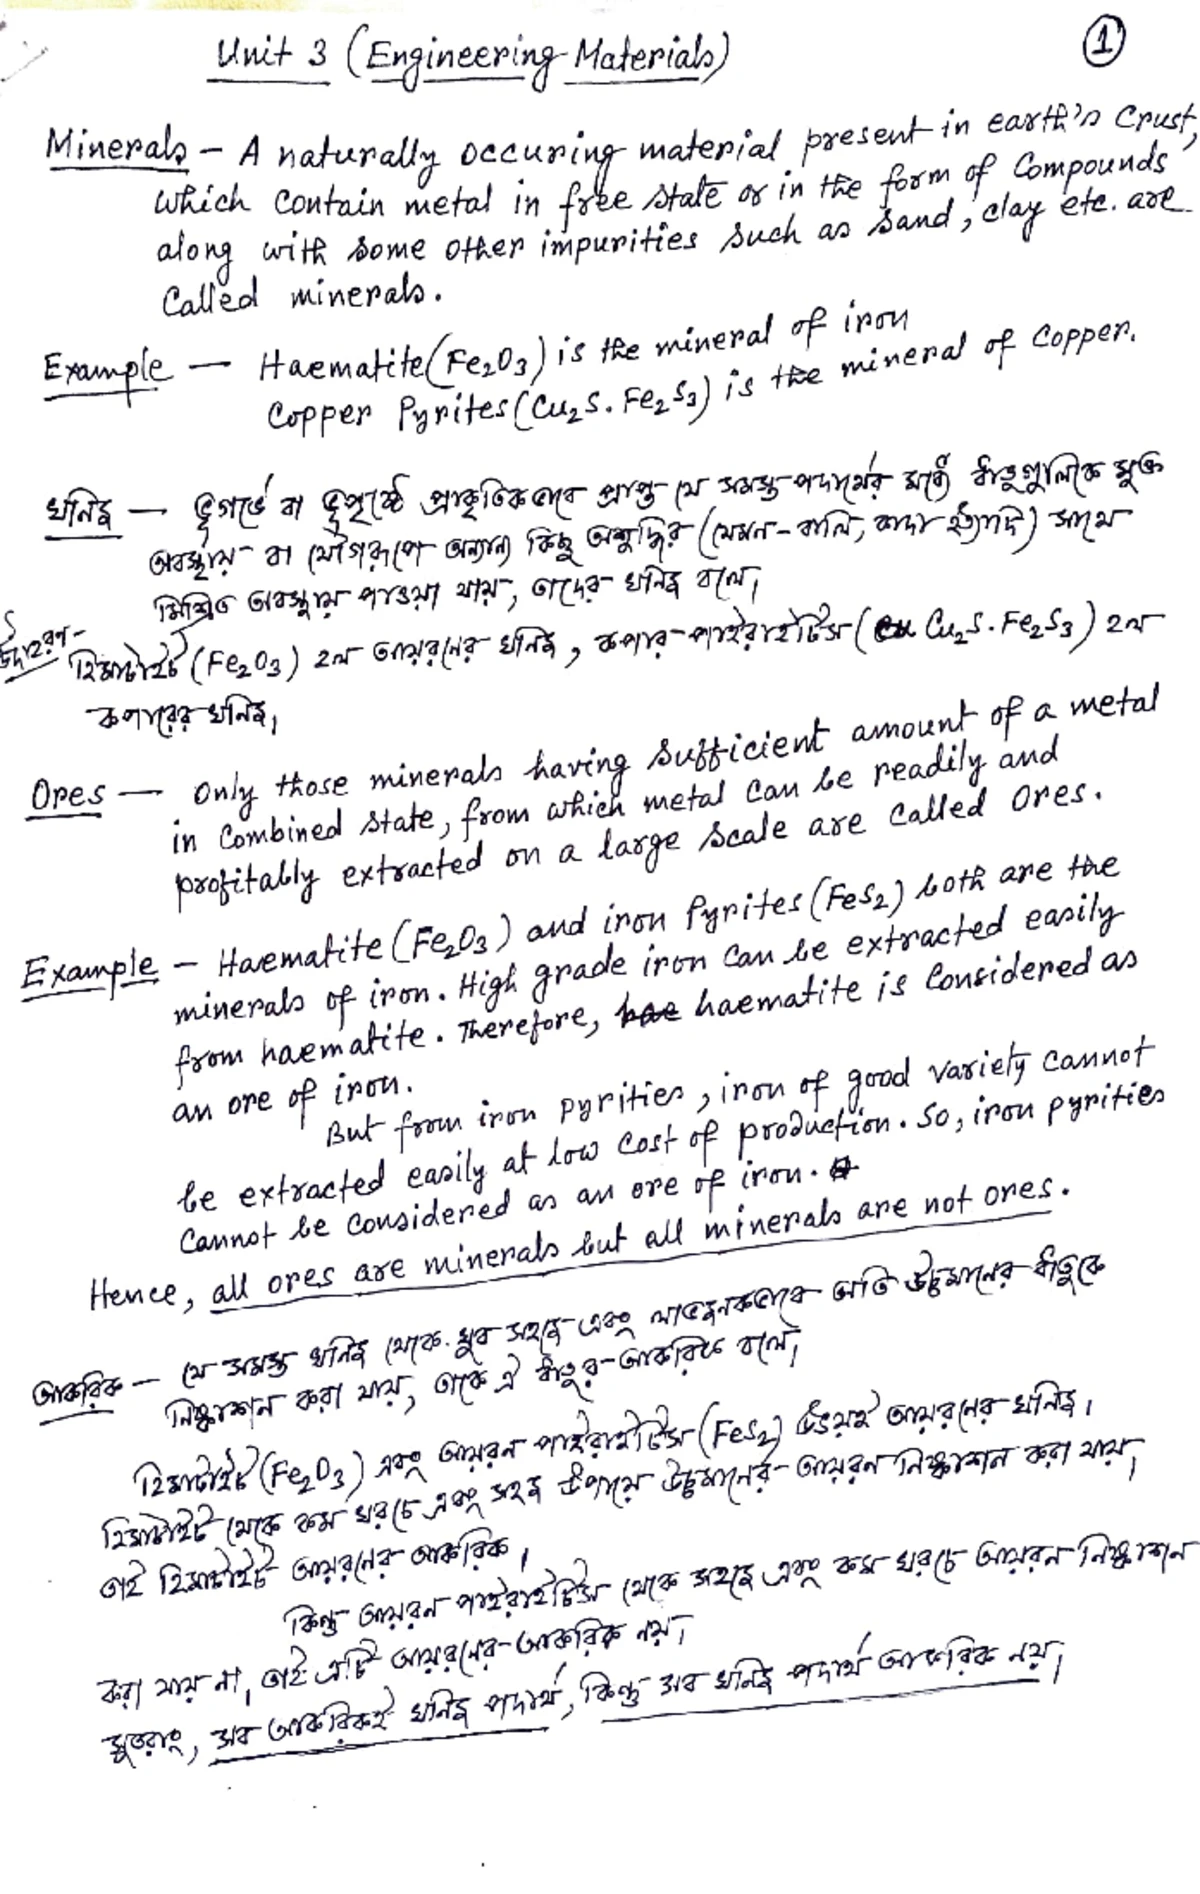 Unit 3 (Engineering Materials)
1
Minerals – A naturally occuring material present in earth's crust,
which contain metal in free state or in the form of compounds
along with some other impurities such as sand, clay etc. are
called minerals.
Example – Haematite (Fe₂O₃) is the mineral of iron
Copper Pyrites (Cu₂S.Fe₂S₃) is the mineral of copper.
খনিজ – ভূগর্ভে বা ভূপৃষ্ঠে প্রাকৃতিকভাবে প্রাপ্ত যে সমস্ত পদার্থের মধ্যে ধাতুগুলিকে মুক্ত
অবস্থায় বা যৌগরূপে অন্যান্য কিছু অশুদ্ধির (যেমন- বালি, কাদা ইত্যাদি) সাথে
মিশ্রিত অবস্থায় পাওয়া যায়, তাদের খনিজ বলে।
উদাহরণ-
হিমাটাইট (Fe₂O₃) হল আয়রনের খনিজ, কপার-পাইরাইটিস (Cu₂S.Fe₂S₃) হল
কপারের খনিজ।
Ores – Only those minerals having sufficient amount of a metal
in combined state, from which metal can be readily and
profitably extracted on a large scale are called ores.
Example – Haematite (Fe₂O₃) and iron Pyrites (FeS₂) both are the
minerals of iron. High grade iron can be extracted easily
from haematite. Therefore, haematite is considered as
an ore of iron.
But from iron pyrities, iron of good variety cannot
be extracted easily at low cost of production. So, iron pyrities
cannot be considered as an ore of iron.
Hence, all ores are minerals but all minerals are not ores.
আকরিক – যে সমস্ত খনিজ থেকে খুব সহজে এবং লাভজনকভাবে অতি উচ্চমানের ধাতুকে
নিষ্কাশন করা যায়, তাকে ঐ ধাতুর-আকরিক বলে।
হিমাটাইট (Fe₂O₃) এবং আয়রন পাইরাইটিস (FeS₂) উভয়ই আয়রনের খনিজ।
হিমাটাইট থেকে কম খরচে এবং সহজ উপায়ে উচ্চমানের আয়রন নিষ্কাশন করা যায়,
তাই হিমাটাইট আয়রনের আকরিক।
কিন্তু আয়রন পাইরাইটিস থেকে সহজে এবং কম খরচে আয়রন নিষ্কাশন
করা যায় না, তাই এটি আয়রনের আকরিক নয়।
সুতরাং, সব আকরিকই খনিজ পদার্থ, কিন্তু সব খনিজ পদার্থ আকরিক নয়।